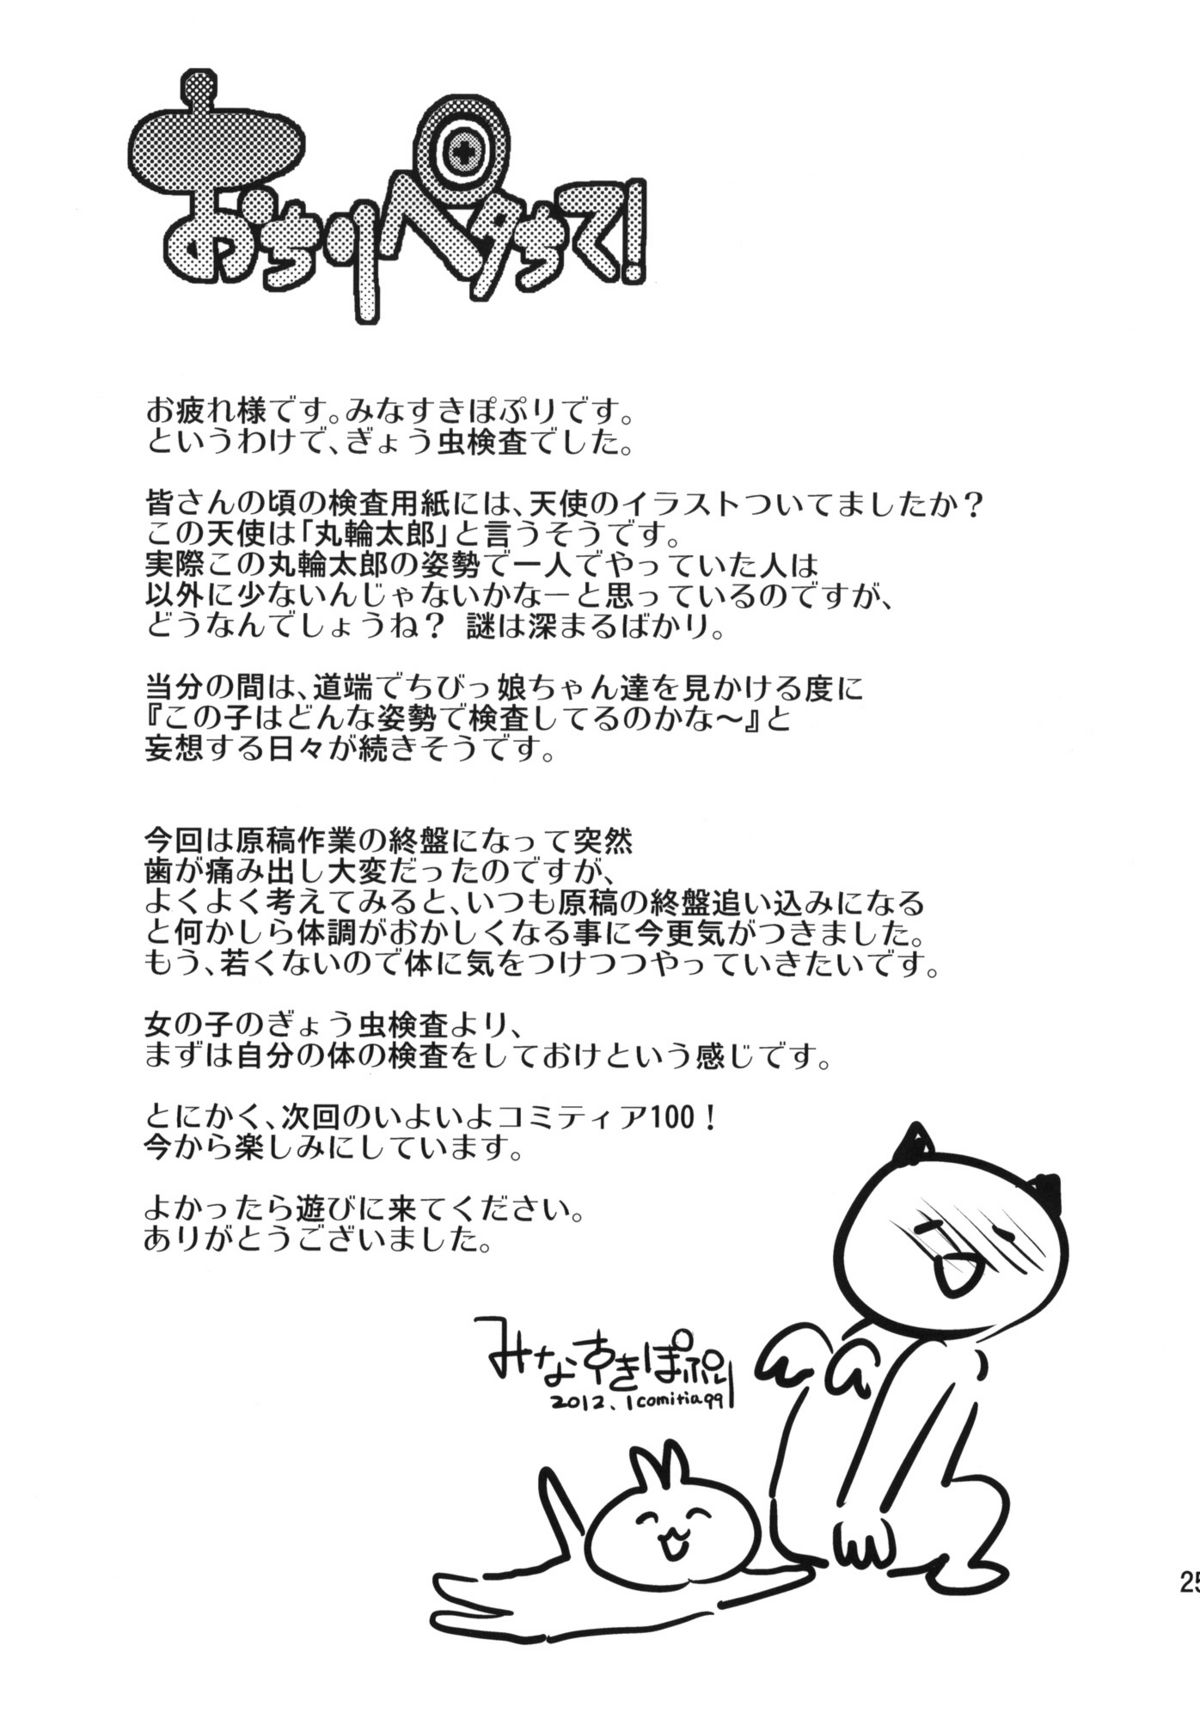 おちりペタちて!
お疲れ様です。みなすきぽぷりです。
というわけで、ぎょう虫検査でした。
皆さんの頃の検査用紙には、天使のイラストついてましたか？
この天使は「丸輪太郎」と言うそうです。
実際この丸輪太郎の姿勢で一人でやっていた人は
以外に少ないんじゃないかなーと思っているのですが、
どうなんでしょうね？ 謎は深まるばかり。
当分の間は、道端でちびっ娘ちゃん達を見かける度に
『この子はどんな姿勢で検査してるのかな〜』と
妄想する日々が続きそうです。
今回は原稿作業の終盤になって突然
歯が痛み出し大変だったのですが、
よくよく考えてみると、いつも原稿の終盤追い込みになる
と何かしら体調がおかしくなる事に今更気がつきました。
もう、若くないので体に気をつけつつやっていきたいです。
女の子のぎょう虫検査より、
まずは自分の体の検査をしておけという感じです。
とにかく、次回のいよいよコミティア100！
今から楽しみにしています。
よかったら遊びに来てください。
ありがとうございました。
みなすきぽぷり
2012.1comitia99
25